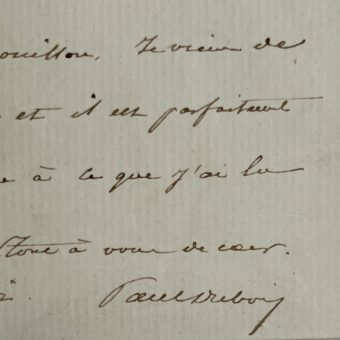 ouillon. Je viens de
et il est parfaitement
e à ce que j'ai lu
Tout à vous de cœur.
Paul Dubois